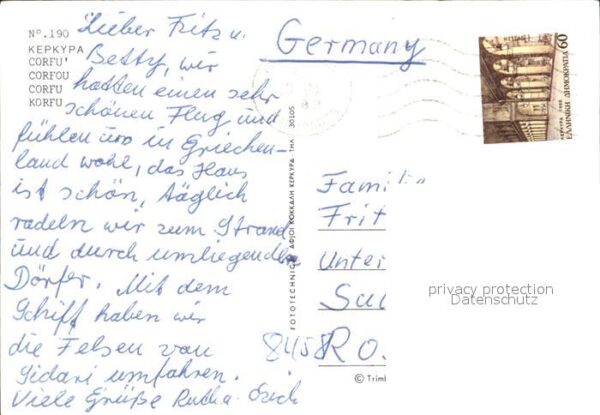 Nº. 190
ΚΕΡΚΥΡΑ
CORFU'
CORFOU
CORFU
KORFU
Lieber Fritz u.
Betty, wir
hatten einen sehr
schönen Flug und
fühlen uns in Griechen-
land wohl, das Haus
ist schön, täglich
radeln wir zum Strand
und durch umliegende
Dörfer. Mit dem
Schiff haben wir
die Felsen von
Sidari umfahren.
Viele Grüße
Germany
60
ΕΛΛΗΝΙΚΗ ΔΗΜΟΚΡΑΤΙΑ
ΚΕΡΚΥΡΑ
ΦΩΤΟΤΕΧΝΙΚΗ ΑΦΟΙ ΚΟΚΚΑΛΗ ΚΕΡΚΥΡΑ · ΤΗΛ. 30105
Famili
Frit
Unter
8458 R o.
privacy protection
Datenschutz
© Trim